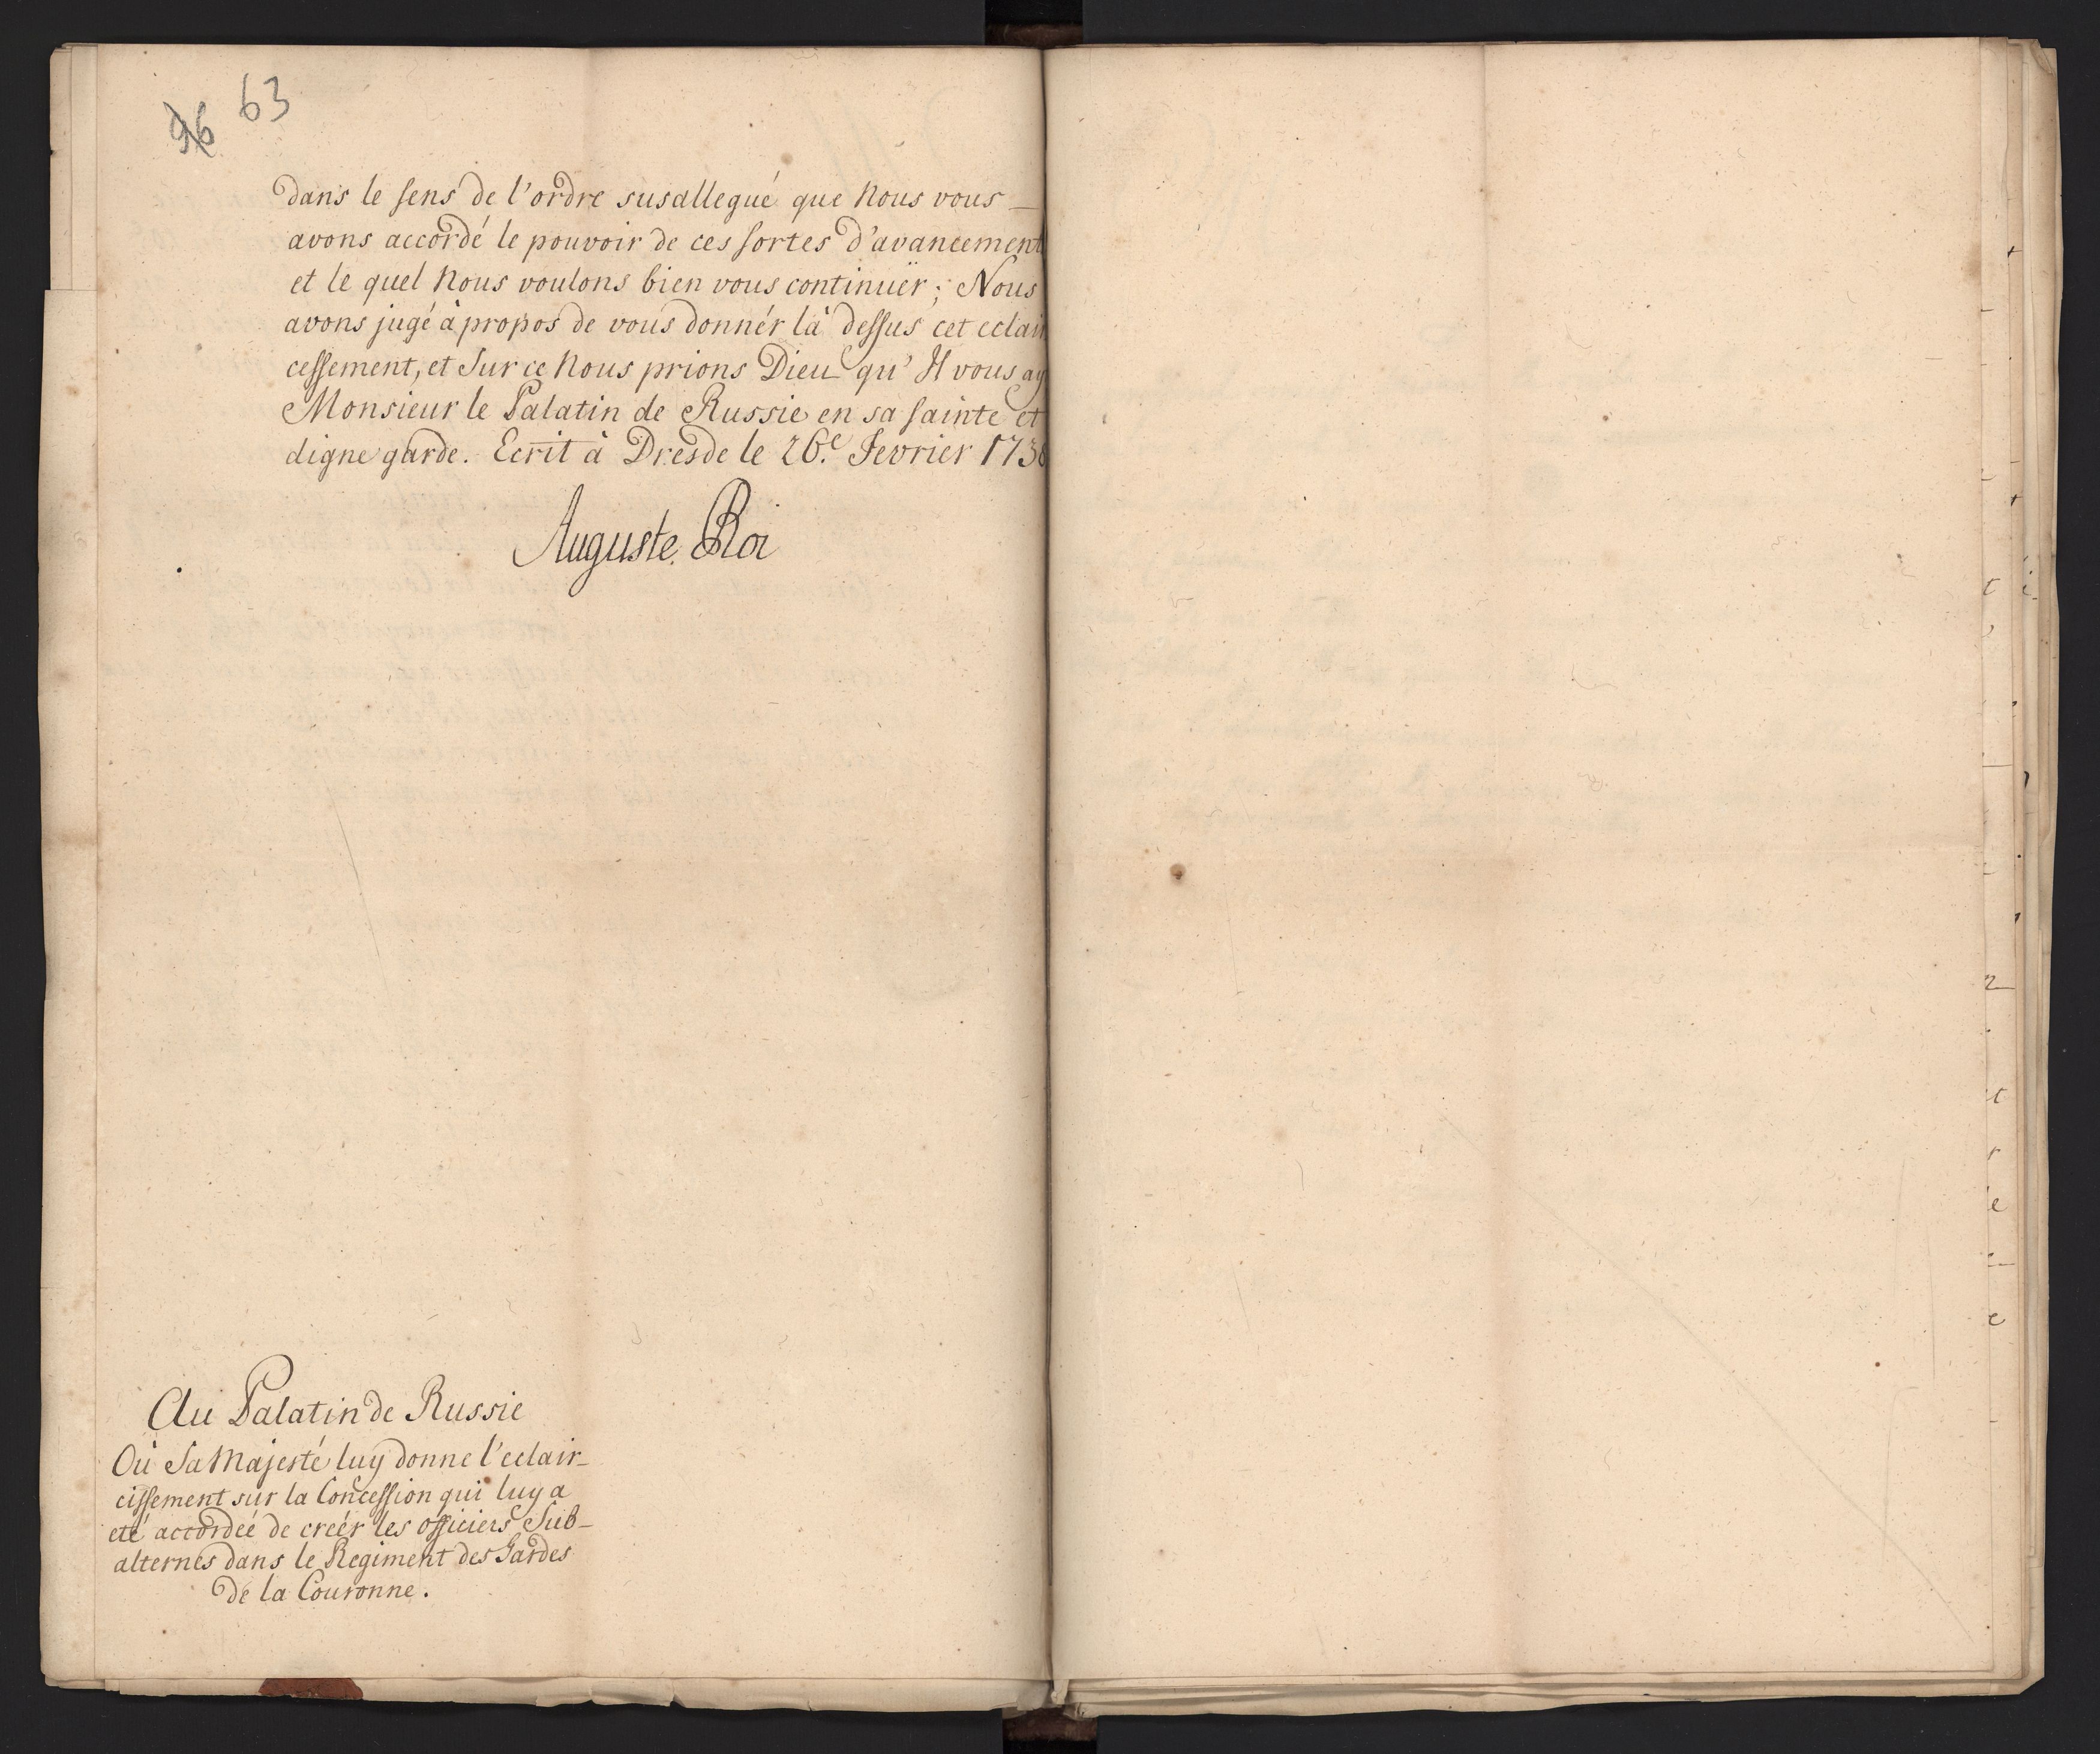 96 63
dans le sens de l'ordre susallegué que Nous vous
avons accordé le pouvoir de ces sortes d'avancement
et le quel Nous voulons bien vous continuër; Nous
avons jugé à propos de vous donnér là dessus cet eclair
cessement, et sur ce Nous prions Dieu qu'Il vous ay
Monsieur le Palatin de Russie en sa sainte et
digne garde. Ecrit à Dresde le 26.e Fevrier 1738
Auguste Roi
Au Palatin de Russie
Où Sa Majesté luy donne l'eclair-
cissement sur la Concession qui luy a
eté accordeé de creér les officiers Sub-
alternes dans le Regiment des Gardes
de la Couronne.